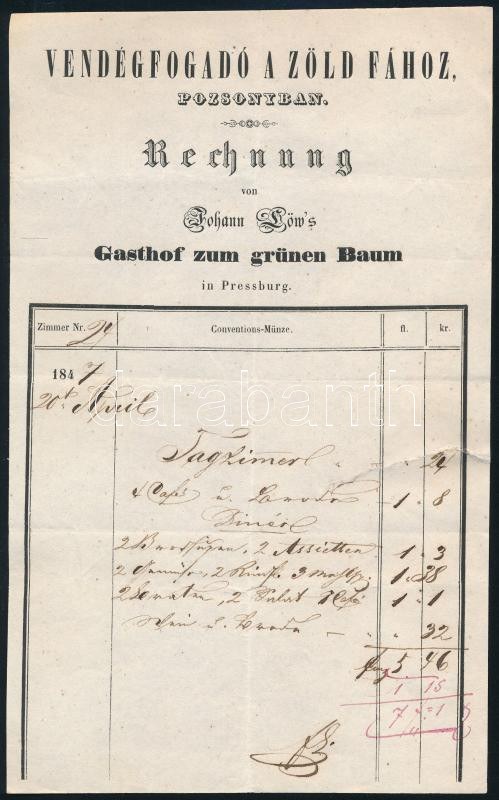 VENDÉGFOGADÓ A ZÖLD FÁHOZ,
POZSONYBAN.
Rechnung
von
Johann Löw's
Gasthof zum grünen Baum
in Pressburg.
Zimmer Nr. 29 Conventions-Münze. fl. kr.
1847
20t April
Tagzimer " 24
4 Café u. Brode 1 " 8
Diner
2 Brodsuppen, 2 Assietten 1 " 3
2 2 Rindf. 3 1 " 38
2 Braten, 2 Salat 1 Café 1 " 1
Wein u. Brode — " " 32
5 46
1 15
7 " 1
darabanth